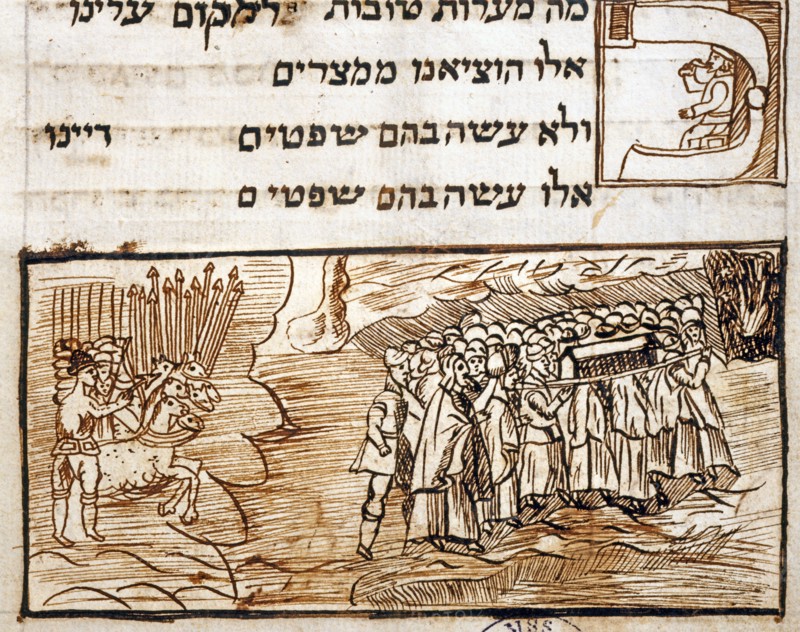 כמה מעלות טובות למקום עלינו
אלו הוציאנו ממצרים
ולא עשה בהם שפטים דיינו
אלו עשה בהם שפטים